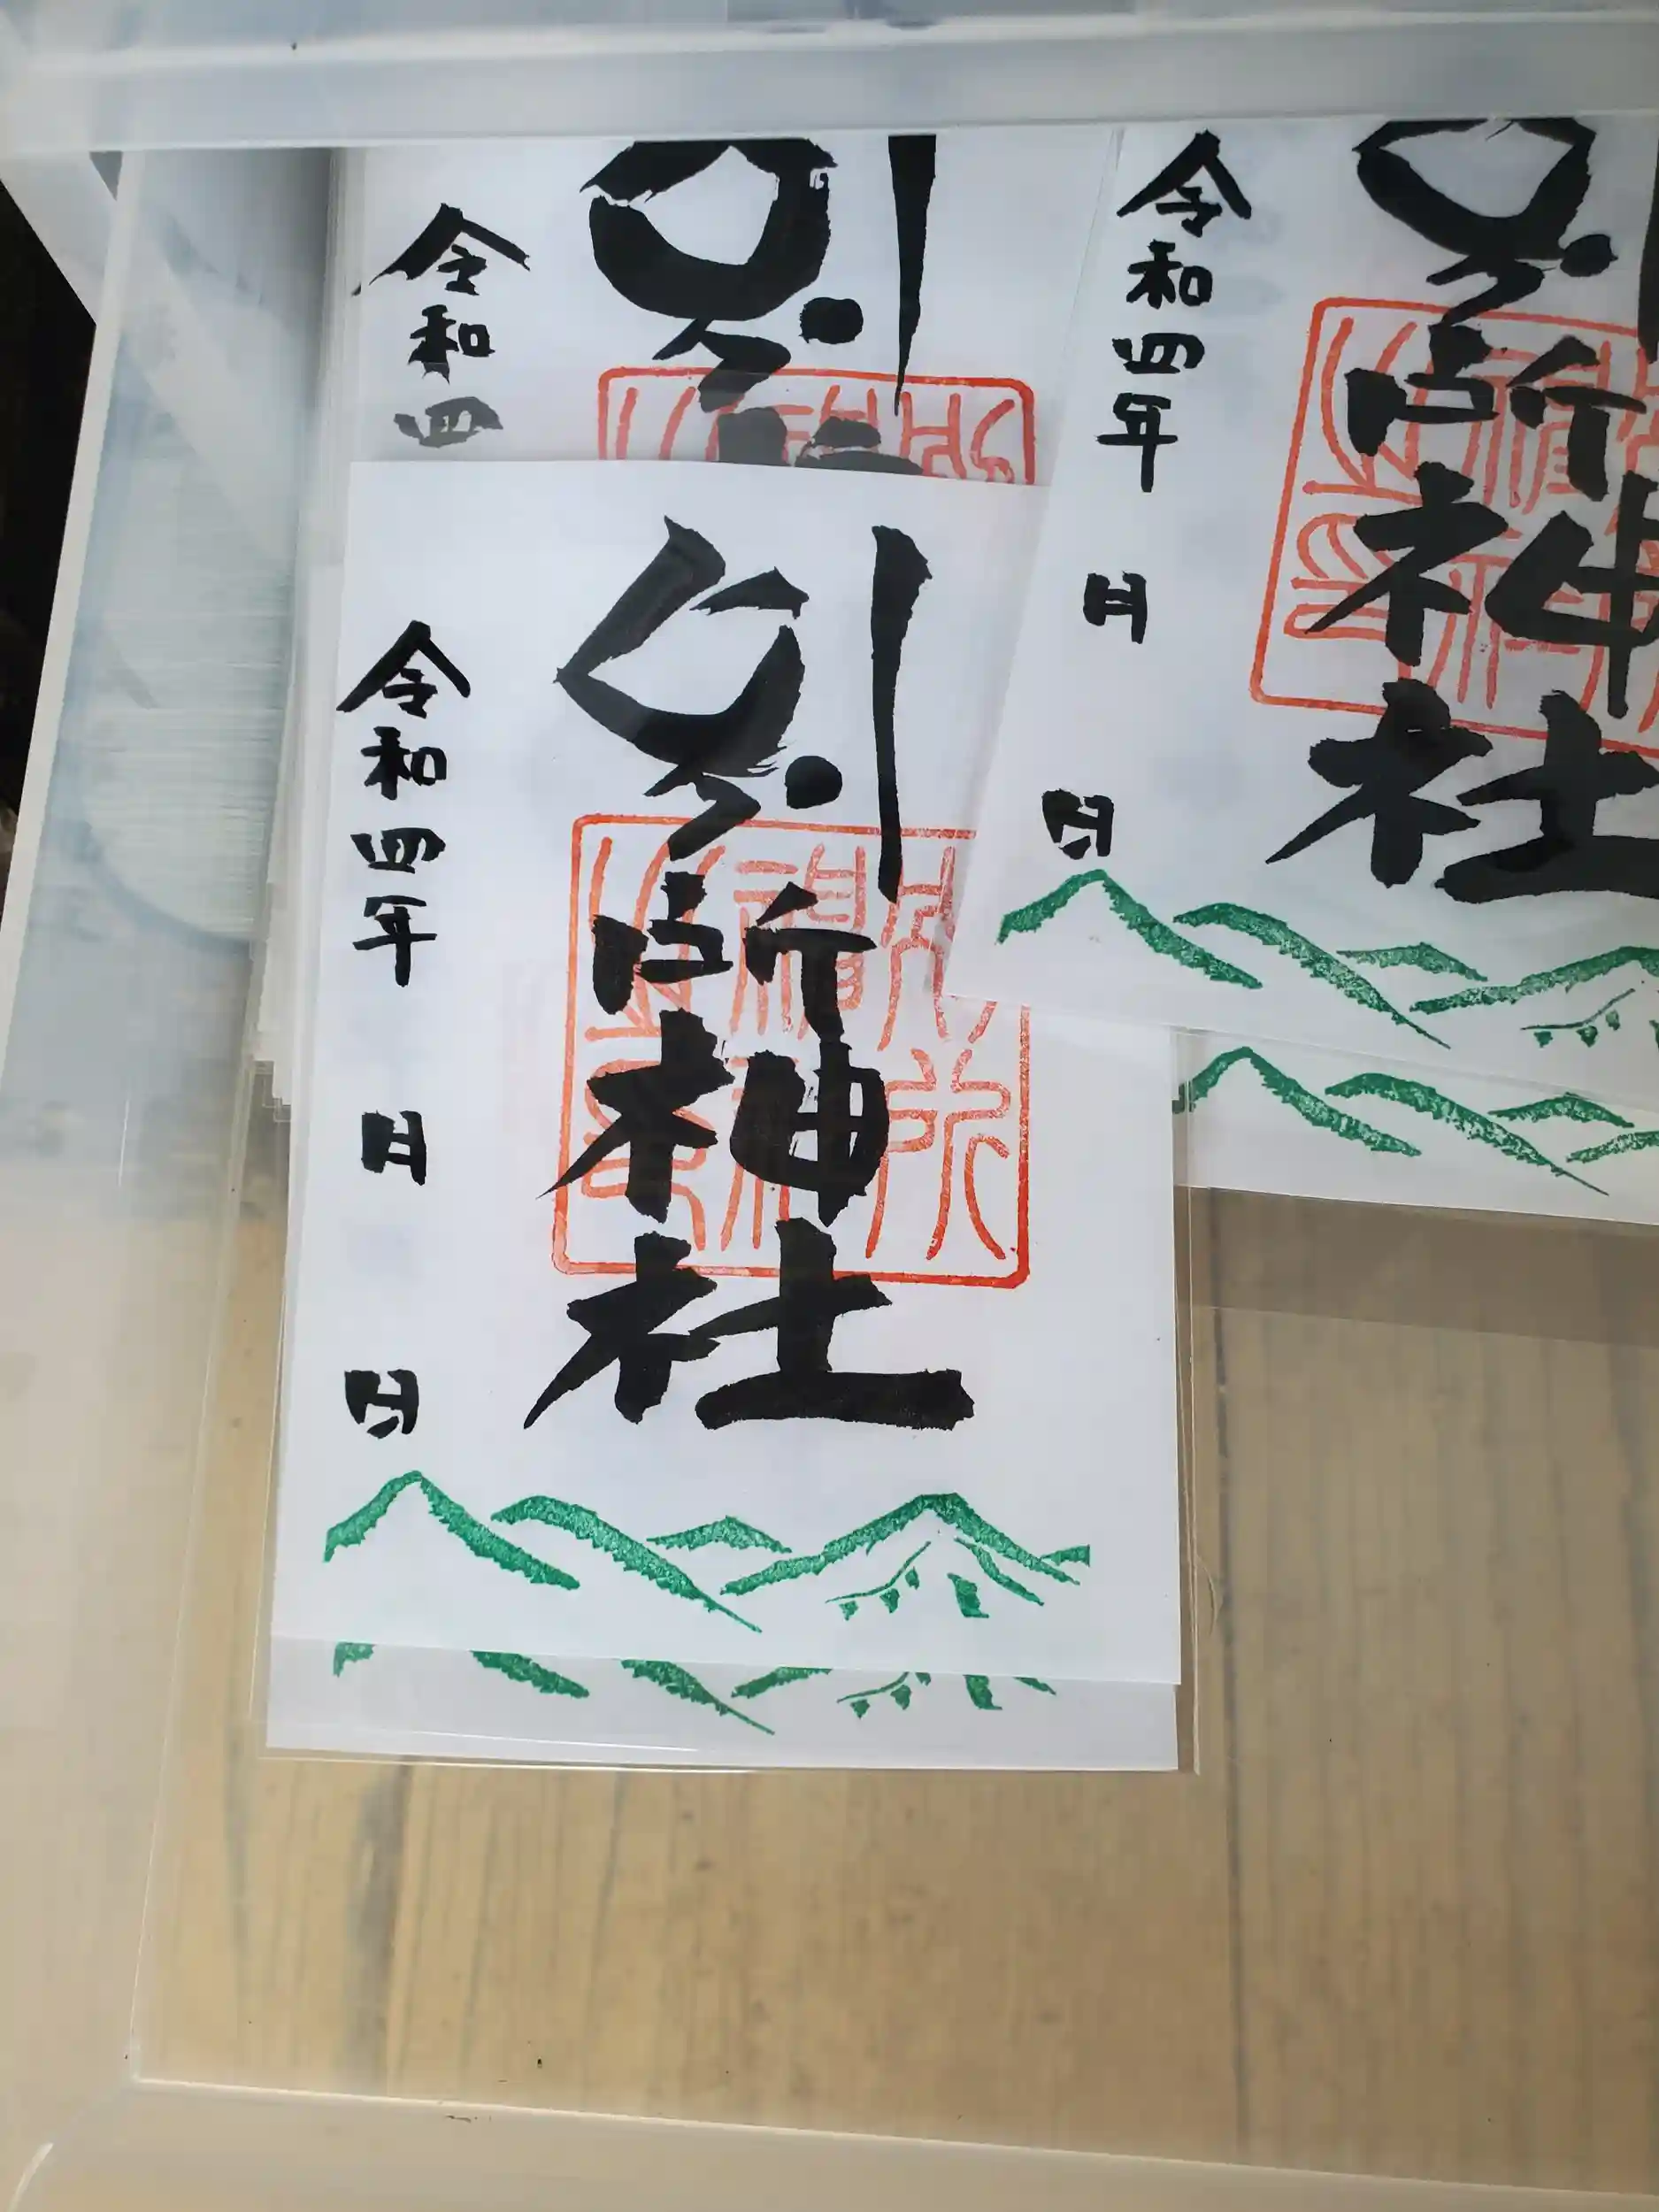 別所神社
令和四年 月 日
令和四
別
所神社
令和四年 月 日